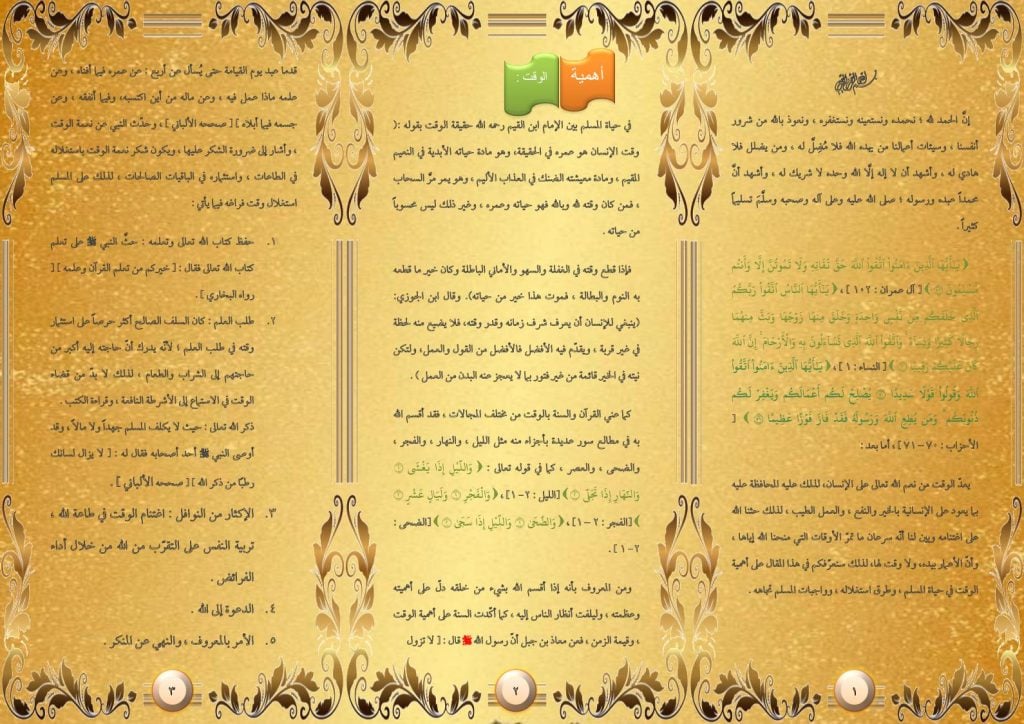 إنَّ الحمد لله ؛ نحمده ونستعينه ونستغفره ، ونعوذ بالله من شرور
أنفسنا ، وسيئات أعمالنا من يهده الله فلا مُضِلَّ له ، ومن يضلل فلا
هادي له ، وأشهد أن لا إله إلَّا الله وحده لا شريك له ، وأشهد أنَّ
محمداً عبده ورسوله ؛ صلى الله عليه وعلى آله وصحبه وسلَّمَ تسليماً
كثيراً .
﴿ يَٰٓأَيُّهَا ٱلَّذِينَ ءَامَنُوا۟ ٱتَّقُوا۟ ٱللَّهَ حَقَّ تُقَاتِهِۦ وَلَا تَمُوتُنَّ إِلَّا وَأَنتُم
مُّسْلِمُونَ ﴾ [ آل عمران : ١٠٢ ] ، ﴿ يَٰٓأَيُّهَا ٱلنَّاسُ ٱتَّقُوا۟ رَبَّكُمُ
ٱلَّذِى خَلَقَكُم مِّن نَّفْسٍ وَٰحِدَةٍ وَخَلَقَ مِنْهَا زَوْجَهَا وَبَثَّ مِنْهُمَا
رِجَالًا كَثِيرًا وَنِسَآءً ۚ وَٱتَّقُوا۟ ٱللَّهَ ٱلَّذِى تَسَآءَلُونَ بِهِۦ وَٱلْأَرْحَامَ ۚ إِنَّ ٱللَّهَ
كَانَ عَلَيْكُمْ رَقِيبًا ﴾ [ النساء : ١ ] ، ﴿ يَٰٓأَيُّهَا ٱلَّذِينَ ءَامَنُوا۟ ٱتَّقُوا۟
ٱللَّهَ وَقُولُوا۟ قَوْلًا سَدِيدًا ۝٧٠ يُصْلِحْ لَكُمْ أَعْمَٰلَكُمْ وَيَغْفِرْ لَكُمْ
ذُنُوبَكُمْ ۗ وَمَن يُطِعِ ٱللَّهَ وَرَسُولَهُۥ فَقَدْ فَازَ فَوْزًا عَظِيمًا ۝٧١ ﴾ [
الأحزاب : ٧٠ – ٧١ ] ، أما بعد :
يعدّ الوقت من نعم الله تعالى على الإنسان، لذلك عليه المحافظة عليه
بما يعود على الإنسانية بالخير والنفع ، والعمل الطيب ، لذلك حثنا الله
على اغتنامه وبين لنا أنّه سرعان ما تمرّ الأوقات التي منحنا الله إياها ،
وأنّ الأعمار بيده، ولا وقت لها، لذلك سنعرّفكم في هذا المقال على أهمية
الوقت في حياة المسلم ، وطرق استغلاله ، وواجبات المسلم تجاهه .
١
أهمية الوقت :
في حياة المسلم بين الإمام ابن القيم رحمه الله حقيقة الوقت بقوله :(
وقت الإنسان هو عمره في الحقيقة، وهو مادة حياته الأبدية في النعيم
المقيم ، ومادة معيشته الضنك في العذاب الأليم ، وهو يمر مرَّ السحاب
، فمن كان وقته لله وبالله فهو حياته وعمره ، وغير ذلك ليس محسوباً
من حياته .
فإذا قطع وقته في الغفلة والسهو والأماني الباطلة وكان خير ما قطعه
به النوم والبطالة ، فموت هذا خير من حياته). وقال ابن الجوزي:
(ينبغي للإنسان أن يعرف شرف زمانه وقدر وقته، فلا يضيع منه لحظة
في غير قربة ، ويقدّم فيه الأفضل فالأفضل من القول والعمل، ولتكن
نيته في الخير قائمة من غير فتور بما لا يعجز عنه البدن من العمل ) .
كما عني القرآن والسنة بالوقت من مختلف المجالات ، فقد أقسم الله
به في مطالع سور عديدة بأجزاء منه مثل الليل ، والنهار ، والفجر ،
والضحى ، والعصر ، كما في قوله تعالى : ﴿ وَٱلَّيْلِ إِذَا يَغْشَىٰ ۝١
وَٱلنَّهَارِ إِذَا تَجَلَّىٰ ۝٢ ﴾ [الليل : ٢-١]، ﴿ وَٱلْفَجْرِ ۝١ وَلَيَالٍ عَشْرٍ ۝٢
﴾ [الفجر : ٢-١]، ﴿ وَٱلضُّحَىٰ ۝١ وَٱلَّيْلِ إِذَا سَجَىٰ ۝٢ ﴾ [الضحى :
٢-١] .
ومن المعروف بأنه إذا أقسم الله بشيء من خلقه دلّ على أهميته
وعظمته ، وليلفت أنظار الناس إليه ، كما أكّدت السنة على أهمية الوقت
، وقيمة الزمن ، فعن معاذ بن جبل أنّ رسول الله ﷺ قال : [ لا تزول
٢
قدما عبد يوم القيامة حتى يُسأل عن أربع : عن عمره فيما أفناه ، وعن
علمه ماذا عمل فيه ، وعن ماله من أين اكتسبه، وفيما أنفقه ، وعن
جسمه فيما أبلاه ] [ صححه الألباني ] ، وحدّث النبي عن نعمة الوقت
، وأشار إلى ضرورة الشكر عليها ، ويكون شكر نعمة الوقت باستغلاله
في الطاعات ، واستثماره في الباقيات الصالحات ، لذلك على المسلم
استغلال وقت فراغه فيما يأتي :
١. حفظ كتاب الله تعالى وتعلمه : حثَّ النبي ﷺ على تعلم
كتاب الله تعالى فقال : [ خيركم من تعلم القرآن وعلمه ] [
رواه البخاري ] .
٢. طلب العلم : كان السلف الصالح أكثر حرصاً على استثمار
وقته في طلب العلم ؛ لأنّه يدرك أنّ حاجته إليه أكبر من
حاجتهم إلى الشراب والطعام ، لذلك لا بدّ من قضاء
الوقت في الاستماع إلى الأشرطة النافعة ، وقراءة الكتب .
ذكر الله تعالى : حيث لا يكلف المسلم جهداً ولا مالاً ، وقد
أوصى النبي ﷺ أحد أصحابه فقال له : [ لا يزال لسانك
رطبًا من ذكر الله ] [ صححه الألباني ] .
٣. الإكثار من النوافل : اغتنام الوقت في طاعة الله ،
تربية النفس على التقرّب من الله من خلال أداء
الفرائض .
٤. الدعوة إلى الله .
٥. الأمر بالمعروف ، والنهي عن المنكر .
٣